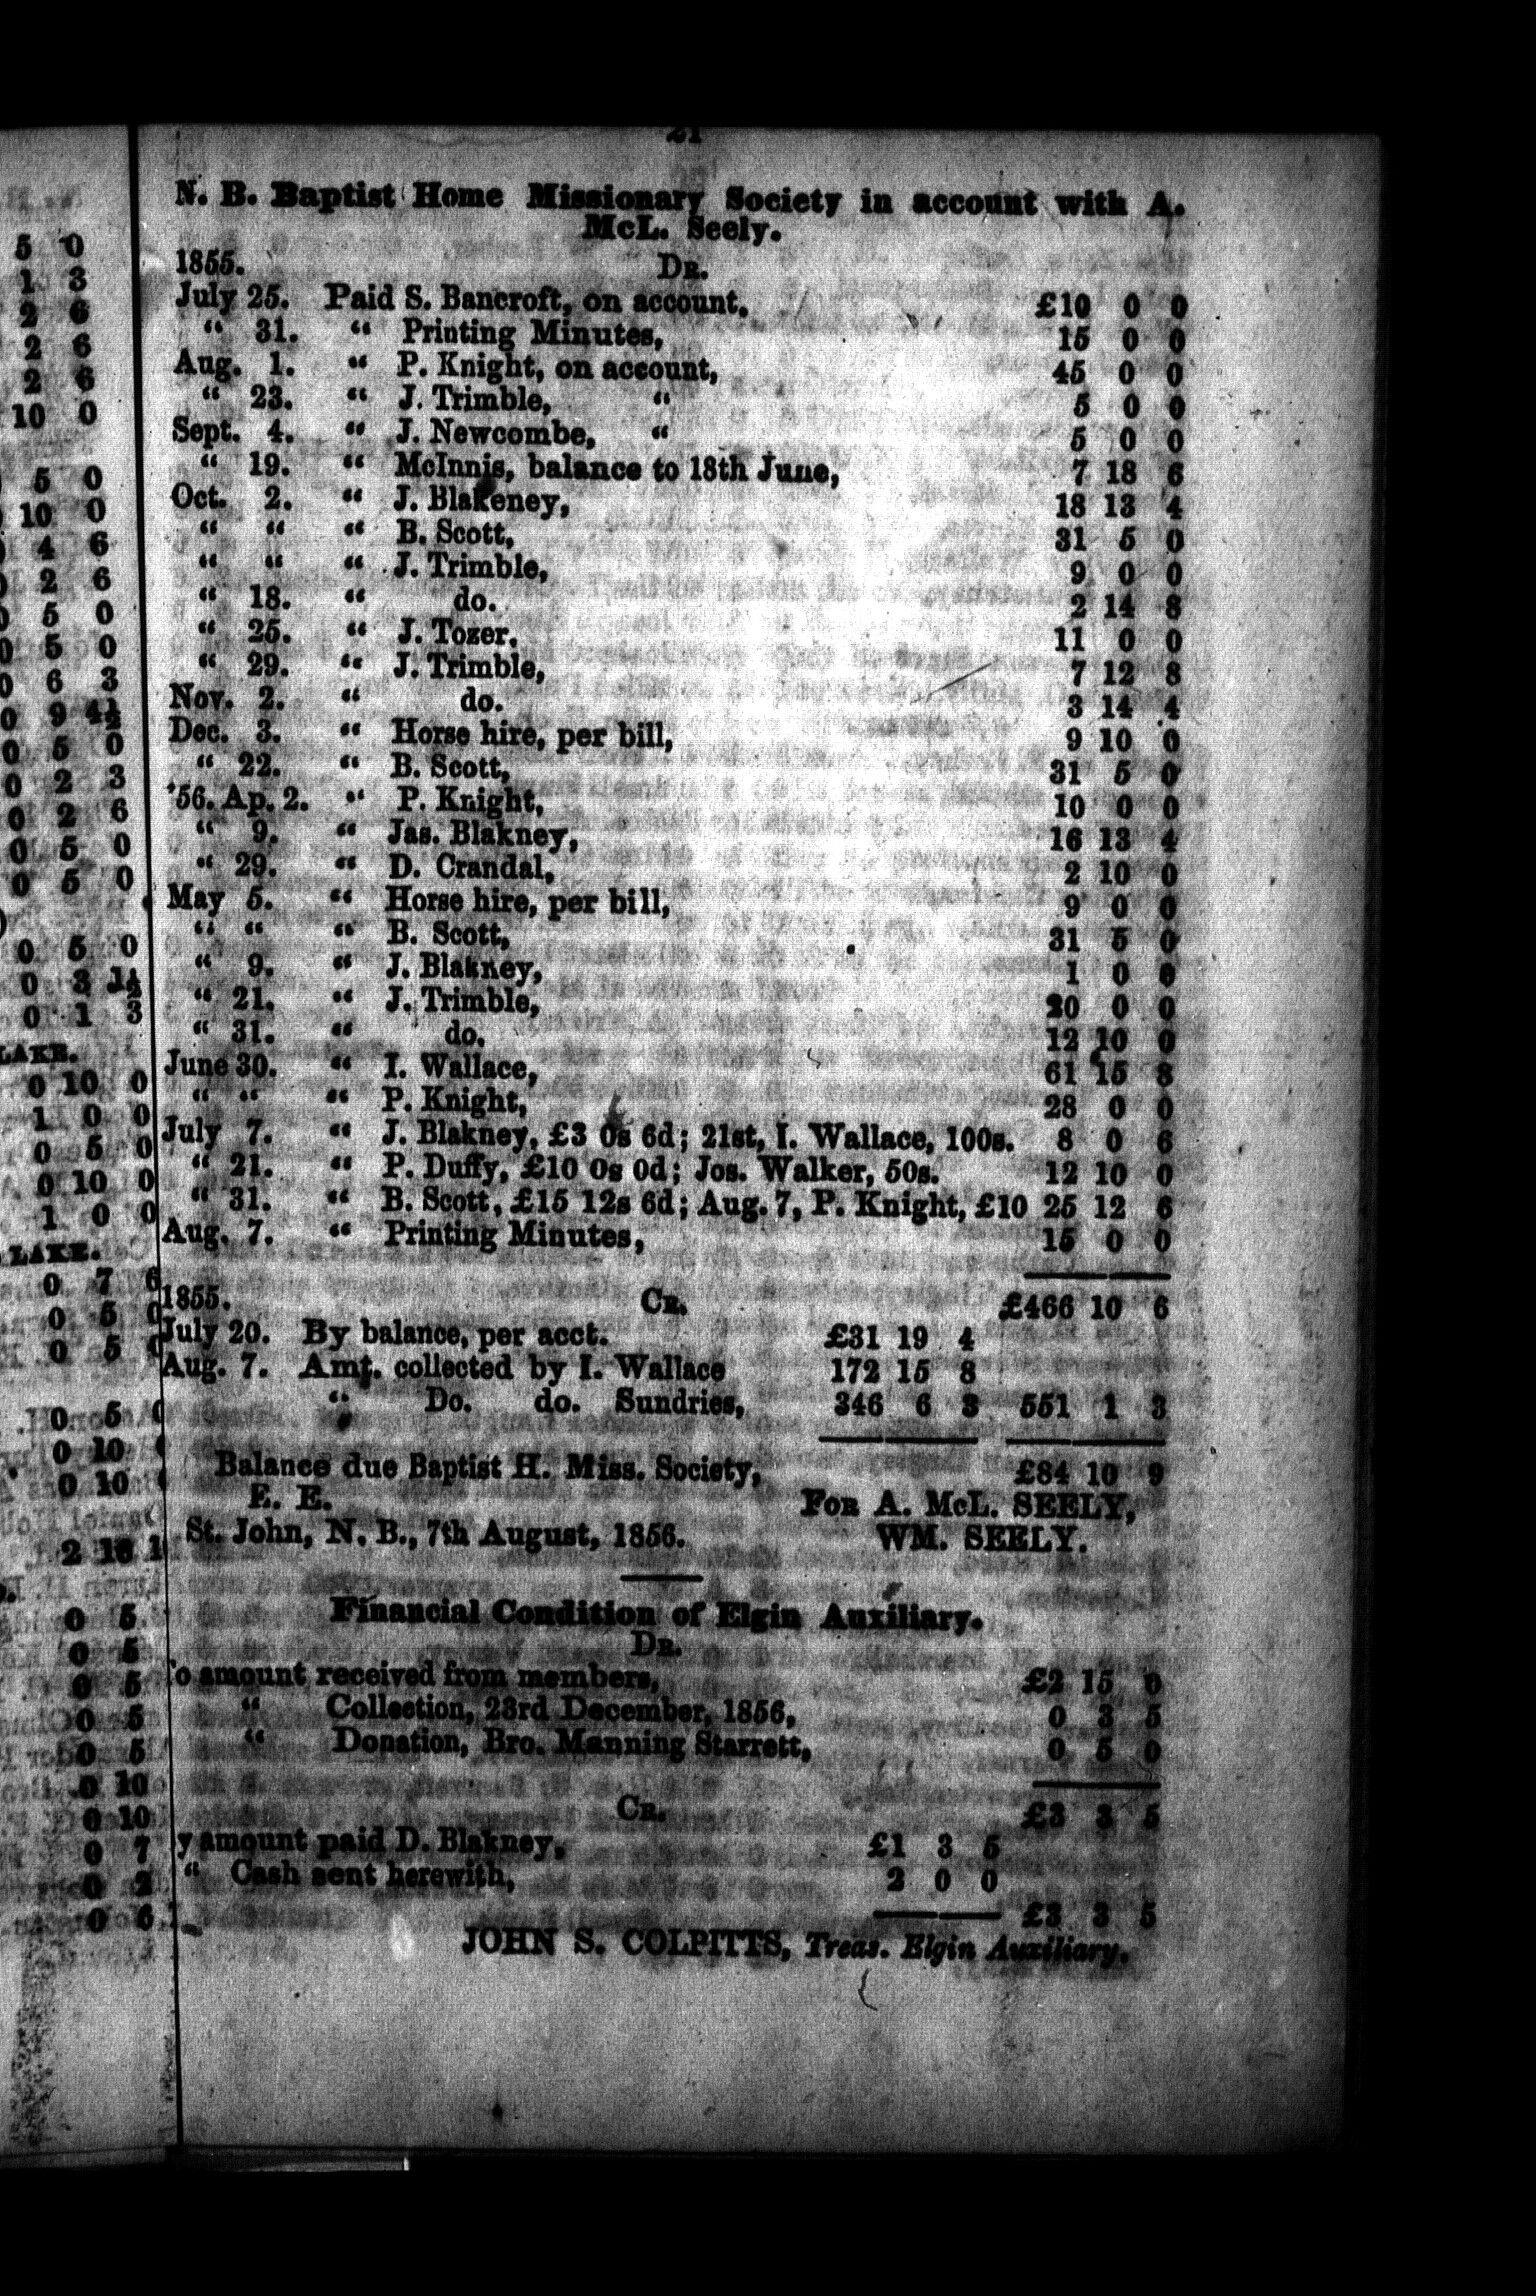 5 0
1 3
2 6
2 6
2 6
10 0
5 0
10 0
4 6
2 6
5 0
0 5 0
0 6 3
0 9 4½
0 5 0
0 2 3
0 2 6
0 5 0
0 5 0
0 5 0
0 3 1½
0 1 3
LAKE.
0 10 0
1 0 0
0 5 0
0 10 0
1 0 0
LAKE.
0 7 6
0 5 0
0 5 0
0 5 0
0 10
0 10
2 16 1
0 5
0 5
0 5
0 5
0 5
0 10
0 10
0 7
0 2
0 6
21
N. B. Baptist Home Missionary Society in account with A.
McL. Seely.
1855. DR.
July 25. Paid S. Bancroft, on account, £10 0 0
“ 31. “ Printing Minutes, 15 0 0
Aug. 1. “ P. Knight, on account, 45 0 0
“ 23. “ J. Trimble, “ 5 0 0
Sept. 4. “ J. Newcombe, “ 5 0 0
“ 19. “ McInnis, balance to 18th June, 7 18 6
Oct. 2. “ J. Blakeney, 18 13 4
“ “ “ B. Scott, 31 5 0
“ “ “ J. Trimble, 9 0 0
“ 18. “ do. 2 14 8
“ 25. “ J. Tozer. 11 0 0
“ 29. “ J. Trimble, 7 12 8
Nov. 2. “ do. 3 14 4
Dec. 3. “ Horse hire, per bill, 9 10 0
“ 22. “ B. Scott, 31 5 0
’56. Ap. 2. “ P. Knight, 10 0 0
“ 9. “ Jas. Blakney, 16 13 4
“ 29. “ D. Crandal, 2 10 0
May 5. “ Horse hire, per bill, 9 0 0
“ “ “ B. Scott, 31 5 0
“ 9. “ J. Blakney, 1 0 0
“ 21. “ J. Trimble, 20 0 0
“ 31. “ do. 12 10 0
June 30. “ I. Wallace, 61 15 8
“ “ “ P. Knight, 28 0 0
July 7. “ J. Blakney, £3 0s 6d; 21st, I. Wallace, 100s. 8 0 6
“ 21. “ P. Duffy, £10 0s 0d; Jos. Walker, 50s. 12 10 0
“ 31. “ B. Scott, £15 12s 6d; Aug. 7, P. Knight, £10 25 12 6
Aug. 7. “ Printing Minutes, 15 0 0
1855. CR. £466 10 6
July 20. By balance, per acct. £31 19 4
Aug. 7. Amt. collected by I. Wallace 172 15 8
“ Do. do. Sundries, 346 6 3 551 1 3
Balance due Baptist H. Miss. Society, £84 10 9
E. E. FOR A. McL. SEELY,
St. John, N. B., 7th August, 1856. WM. SEELY.
Financial Condition of Elgin Auxiliary.
DR.
o amount received from members, £2 15 0
“ Collection, 23rd December, 1856, 0 3 5
“ Donation, Bro. Manning Starrett, 0 5 0
CR. £3 3 5
y amount paid D. Blakney, £1 3 5
“ Cash sent herewith, 2 0 0
£3 3 5
JOHN S. COLPITTS, Treas. Elgin Auxiliary.